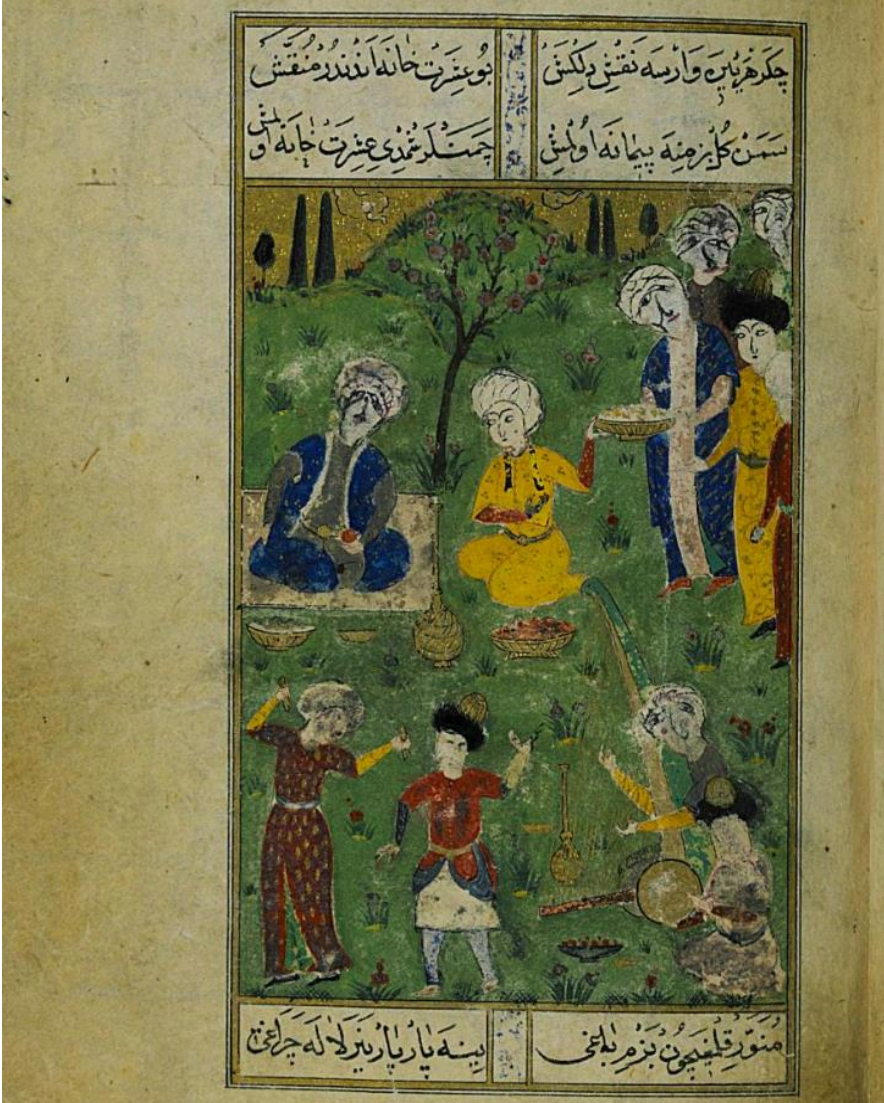 چكر هر يره وارسه نقش دلكش بو عشرت خانه اندندر منقش
سمن كل بزمنه پيمانه اولمش چمنلر شمدى عشرت خانه اولمش
منور قلمغيچون بزم باغى يينه پار پار ينر لاله چراغى